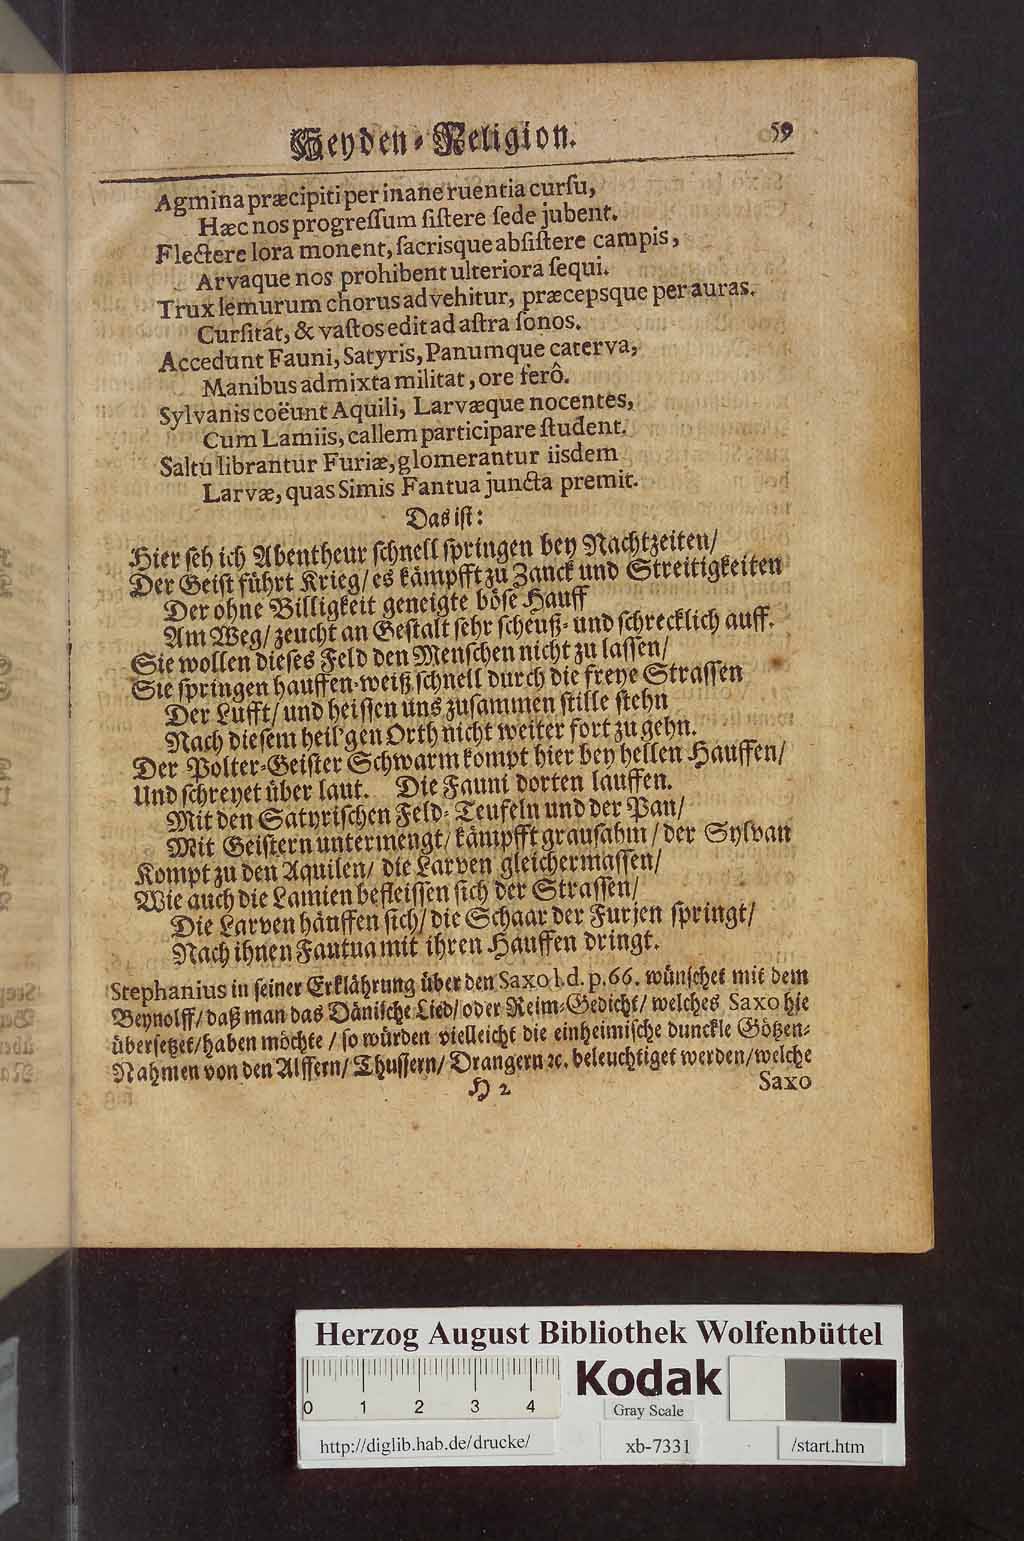 Heyden-Religion. 59
Agmina præcipiti per inane ruentia cursu,
Hæc nos progressum sistere sede jubent.
Flectere lora monent, sacrisque absistere campis,
Arvaque nos prohibent ulteriora sequi.
Trux lemurum chorus advehitur, præcepsque per auras.
Cursitat, & vastos edit ad astra sonos.
Accedunt Fauni, Satyris, Panumque caterva,
Manibus admixta militat, ore ferô.
Sylvanis coëunt Aquili, Larvæque nocentes,
Cum Lamiis, callem participare student.
Saltu librantur Furiæ, glomerantur iisdem
Larvæ, quas Simis Fantua juncta premit.
Das ist:
Hier seh ich Abentheur schnell springen bey Nachtzeiten/
Der Geist führt Krieg/ es kämpfft zu Zanck und Streitigkeiten
Der ohne Billigkeit geneigte böse Hauff
Am Weg/ zeucht an Gestalt sehr scheuß- und schrecklich auff.
Sie wollen dieses Feld den Menschen nicht zu lassen/
Sie springen hauffen-weiß schnell durch die freye Strassen
Der Lufft/ und heissen uns zusammen stille stehn
Nach diesem heil'gen Orth nicht weiter fort zu gehn.
Der Polter-Geister Schwarm kompt hier bey hellen Hauffen/
Und schreyet über laut. Die Fauni dorten lauffen.
Mit den Satyrischen Feld-Teufeln und der Pan/
Mit Geistern untermengt/ kämpfft grausahm/ der Sylvan
Kompt zu den Aquilen/ die Larven gleichermassen/
Wie auch die Lamien befleissen sich der Strassen/
Die Larven häuffen sich/ die Schaar der Furien springt/
Nach ihnen Fautua mit ihren Hauffen dringt.
Stephanius in seiner Erklährung über den Saxo l.d. p.66. wünschet mit dem
Beynolff/ daß man das Dänische Lied/ oder Reim-Gedicht/ welches Saxo hie
übersetzet/ haben möchte/ so würden vielleicht die einheimische dunckle Götzen-
Nahmen von den Alffern/ Thussern/ Drangern ꝛc. beleuchtiget werden/ welche
H 2 Saxo
Herzog August Bibliothek Wolfenbüttel
0 1 2 3 4
Kodak
Gray Scale
http://diglib.hab.de/drucke/ xb-7331 /start.htm